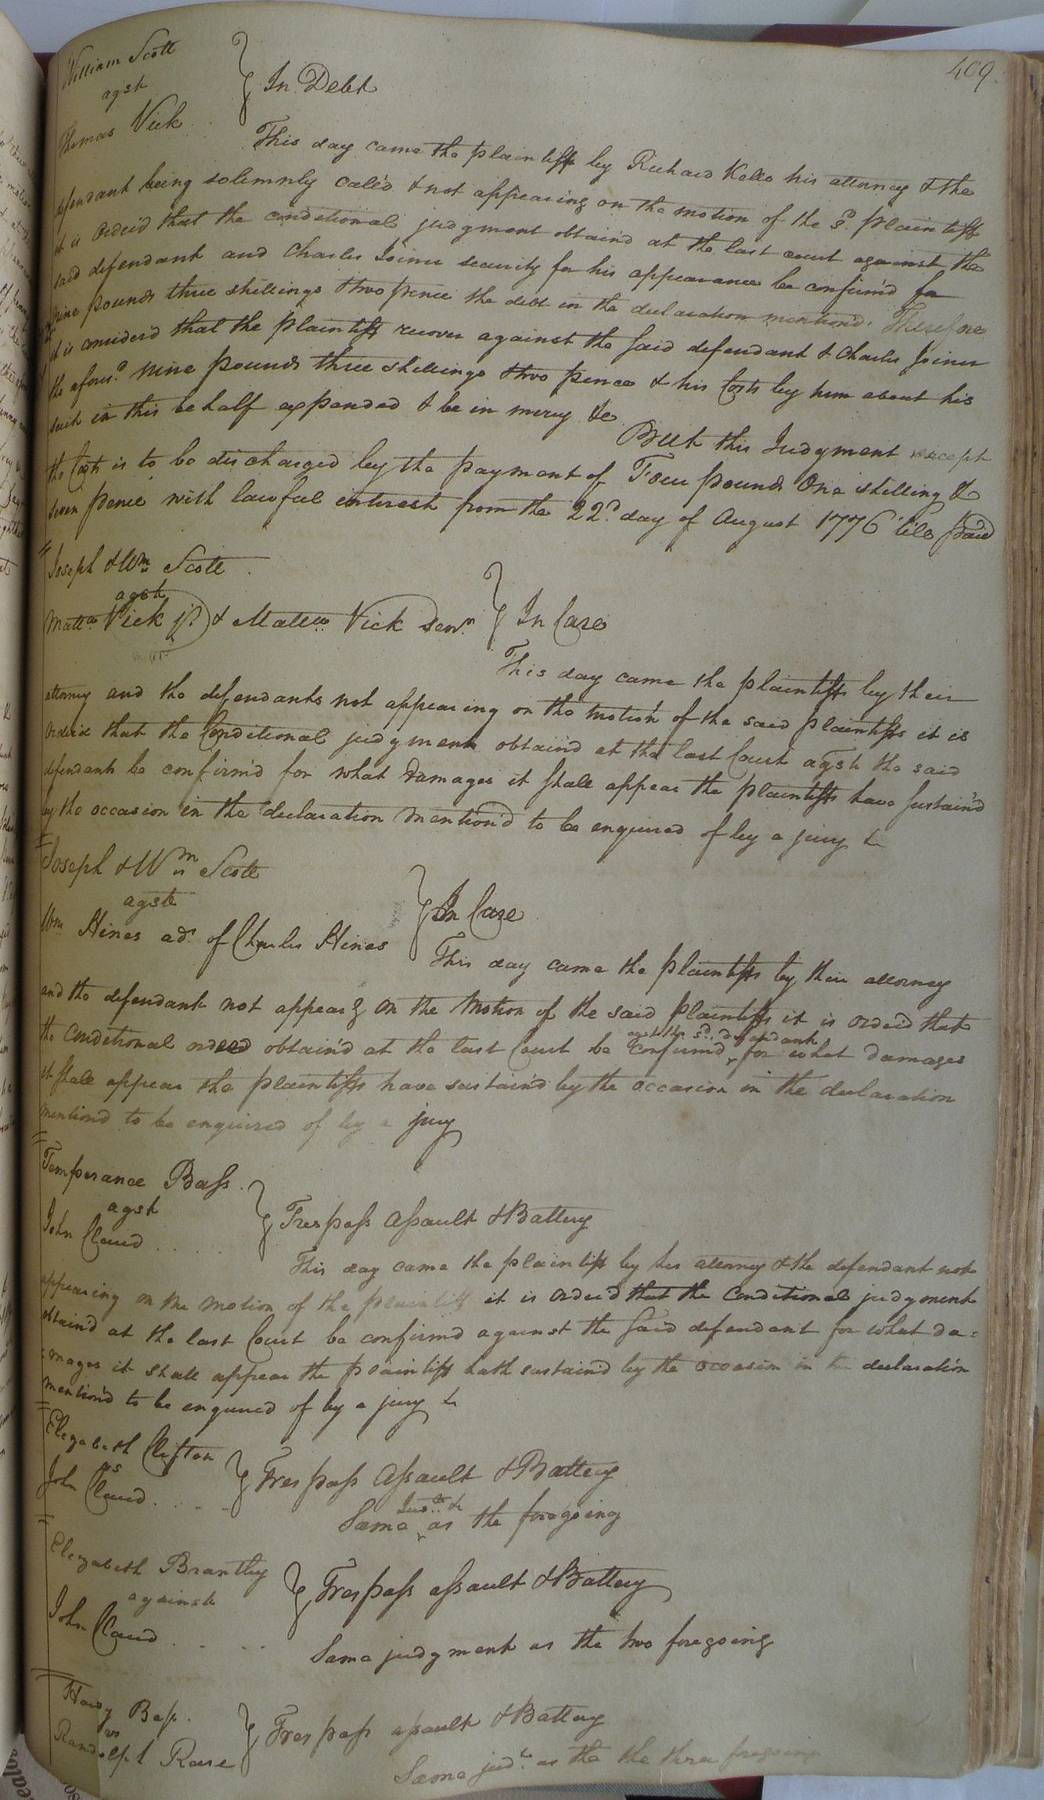 409.
William Scott
agst
Thomas Vick
In Debt
This day came the plaintiff by Richard Kello his attorney & the
defendant being solemnly caled & not appearing on the motion of the sd. plaintiff
it is Orderd that the conditional judgment obtain'd at the last court against the
said defendant and Charles Joiner security for his appearance be confirm'd for
Nine pounds three shillings & two pence the debt in the declaration mentiond. Therefore
it is considerd that the plaintiff recover against the said defendant & Charles Joiner
the aforesd. nine pounds three shillings & two pence & his Costs by him about his
suit in this behalf expended & be in mercy &c
But this Judgment except
the Costs is to be discharged by the payment of Four pounds One shilling &
seven pence with lawful interest from the 22d. day of August 1776 'till paid
Joseph & Wm Scott
agst
Mattw Vick jr. & Mattw Vick Senr.
In Case
This day came the plaintiffs by their
attorney and the defendants not appearing on the motion of the said plaintiffs it is
Orderd that the Conditional judgment obtain'd at the last Court agst the said
defendants be confirm'd for what damages it shall appear the plaintiffs have sustain'd
by the occasion in the declaration mention'd to be enquired of by a jury &c
Joseph & Wm Scott
agst
Wm Hines adr. of Charles Hines
In Case
This day came the plaintiffs by their attorney
and the defendant not appearg on the motion of the said plaintiffs it is orderd that
agst the sd. defendant
the conditional order obtain'd at the last Court be confirmd for what damages
it shall appear the plaintiffs have sustain'd by the occasion in the declaration
mentiond to be enquired of by a jury
Temperance Bass
agst
John Claud
Trespass Assault & Battery
This day came the plaintiff by her attorney & the defendant not
appearing on the motion of the plaintiff it is Orderd that the Conditional judgment
obtaind at the last Court be confirmd against the said defendant for what da=
=mages it shall appear the plaintiff hath sustain'd by the occasion in the declaration
mention'd to be enquired of by a jury &c
Elizabeth Clifton
vs
John Claud
Trespass Assault & Battery
Same as the foregoing
Elizabeth Brantley
against
John Claud
Trespass assault & Battery
Same judgment as the two foregoing
Hardy Bass.
vs
Randolph Rose
Trespass assault & Battery
Same judt. as the the three foregoing